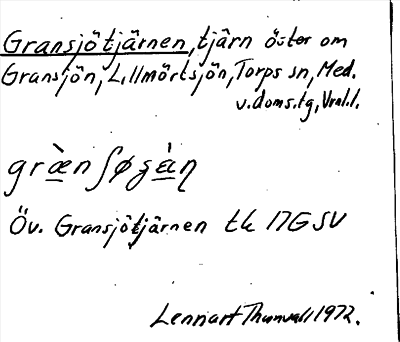 Gransjötjärnen, tjärn öster om
Gransjön, Lillmörtsjön, Torps sn, Med.
v.doms.tg, Vnl.l.
græ̀n ʃøʒæ̀η
Öv. Gransjötjärnen tk 17G SV
Lennart Thunvall 1972.